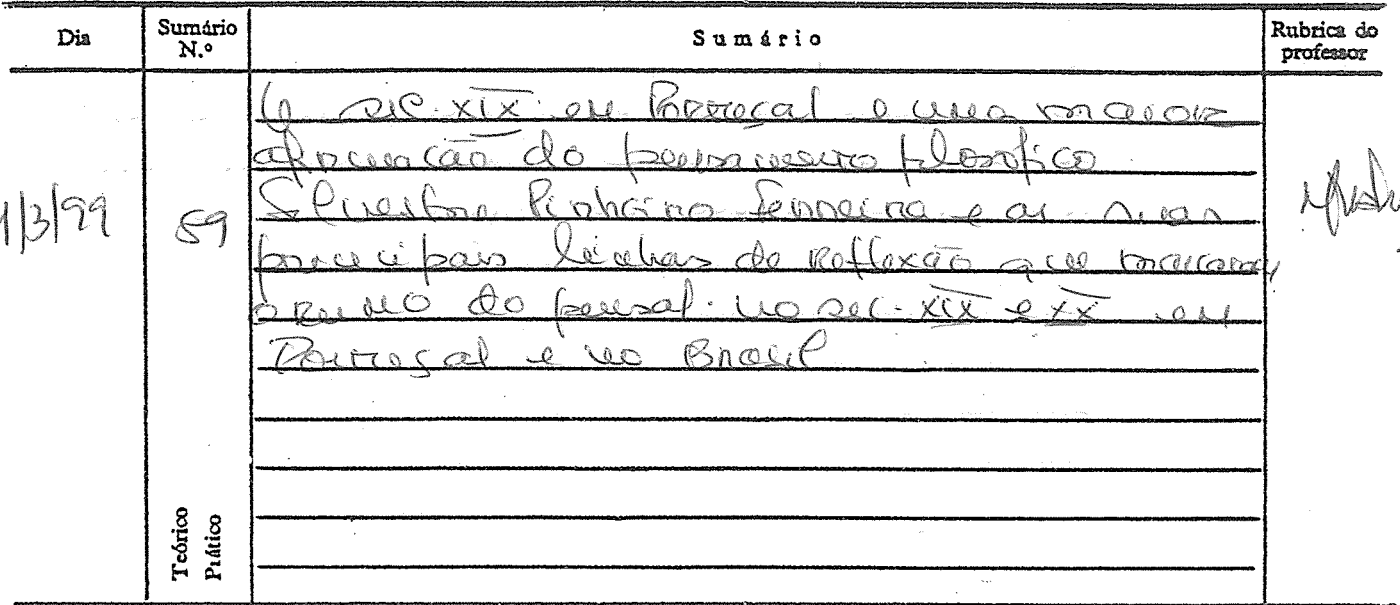 Dia
Sumário N.º
Sumário
Rubrica do professor
1/3/99
59
O sec. XIX em Portugal e uma maior
afirmação do pensamento filosófico
Silvestre Pinheiro Ferreira e as suas
principais linhas de reflexão que marcaram
o rumo do pensa/. no sec. XIX e XX em
Portugal e no Brasil
Teórico
Prático